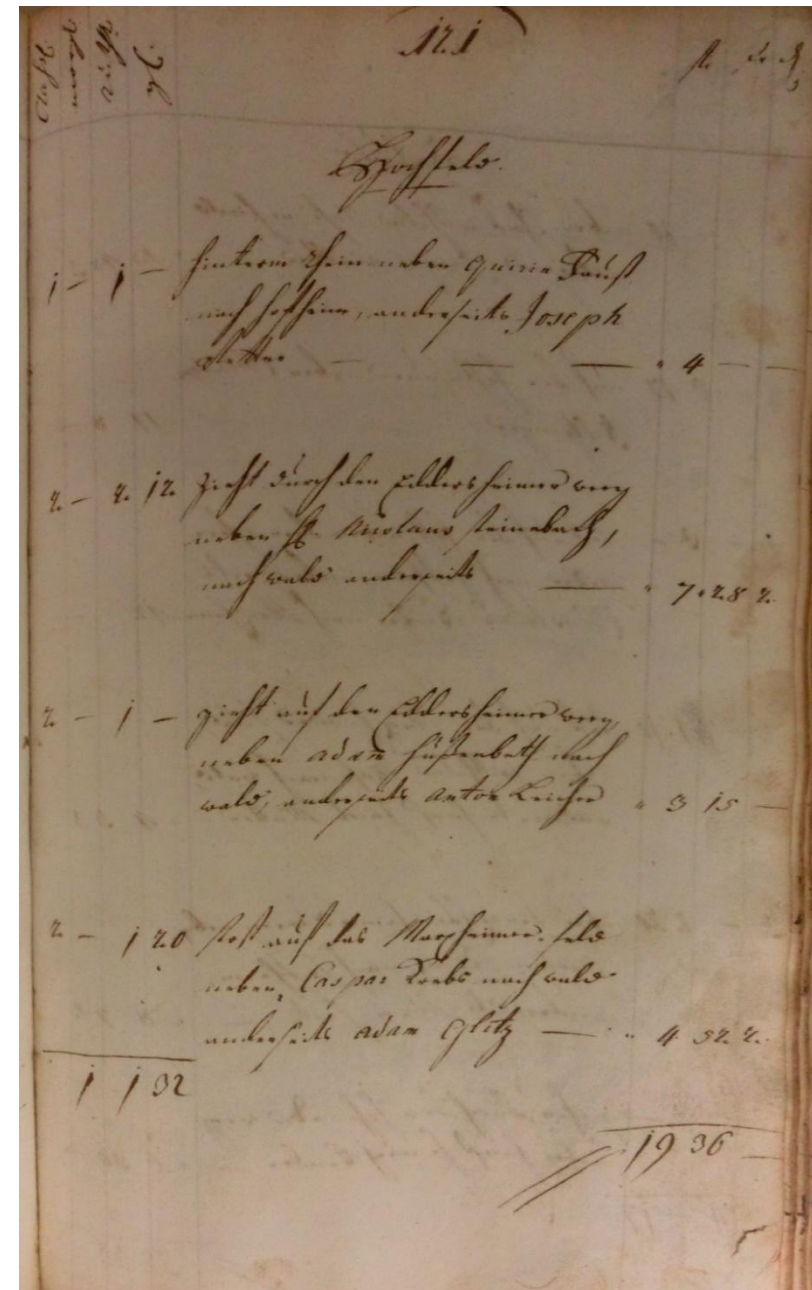 121
fl. Xr. ₰
Hochfeld.
1 – 1 – hinterm Rhein neben Quirin Faust
nach Hofheim, anderseits Joseph
" 4 – –
2 – 2 12 zieht durch den Eddersheimer weeg
neben H. Nicolaus Steinebach,
nach wald anderseits — " 7 28 2
2 – 1 – zieht auf den Eddersheimer weeg
neben Adam nach
wald, anderseits Anton Leicher " 3 15 –
2 – 1 20 stost auf das Marxheimer feld
neben Caspar Krebs nach wald
anderseits Adam Glitz — " 4 52 2
1 1 32
19 36 –